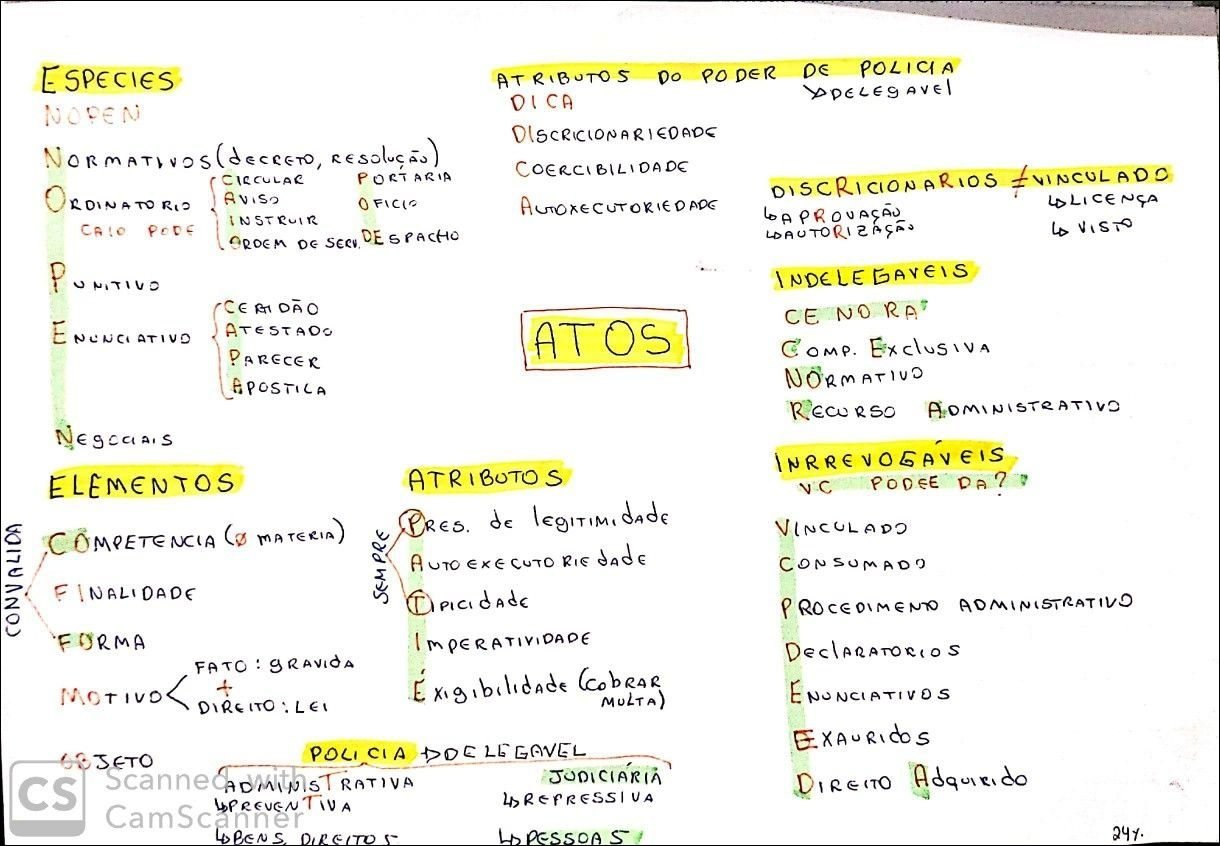 ESPECIES
NOPEN
NORMATIVOS (dECRETO, RESOLUÇÃO)
ORDINATORIO
CAIO PODE
CIRCULAR
AVISO
INSTRUIR
ORDEM DE SERV.
PORTARIA
OFICIO
DESPACHO
PUNITIVO
ENUNCIATIVO
CERTIDÃO
ATESTADO
PARECER
APOSTILA
NEGOCIAIS
ATRIBUTOS DO PODER DE POLICIA
↳DELEGAVEL
DICA
DISCRICIONARIEDADE
COERCIBILIDADE
AUTOXECUTORIEDADE
ATOS
DISCRICIONARIOS ≠ VINCULADO
↳APROVAÇÃO
↳AUTORIZAÇÃO
↳LICENÇA
↳ VISTO
INDELEGAVEIS
CE NO RA
COMP. EXCLUSIVA
NORMATIVO
RECURSO ADMINISTRATIVO
INRREVOGÁVEIS
VC PODEE DA?
VINCULADO
CONSUMADO
PROCEDIMENTO ADMINISTRATIVO
DECLARATORIOS
ENUNCIATIVOS
EXAURIdOS
DIREITO AdQUIRIdO
ELEMENTOS
CONVALIDA
COMPETENCIA (Ø MATERIA)
FINALIDADE
FORMA
MOTIVO
FATO: GRAVIdA
+
DIREITO: LEI
OBJETO
ATRIBUTOS
SEMPRE
PRES. de legitimidade
AUTOEXECUTORIEdAdE
TIPICIdAdE
IMPERATIVIDADE
Exigibilidade (COBRAR MULTA)
POLICIA →DELEGAVEL
ADMINISTRATIVA
↳PREVENTIVA
↳BENS, DIREITOS
JUDICIÁRIA
↳REPRESSIVA
↳PESSOAS
CS
Scanned with
CamScanner
24%.